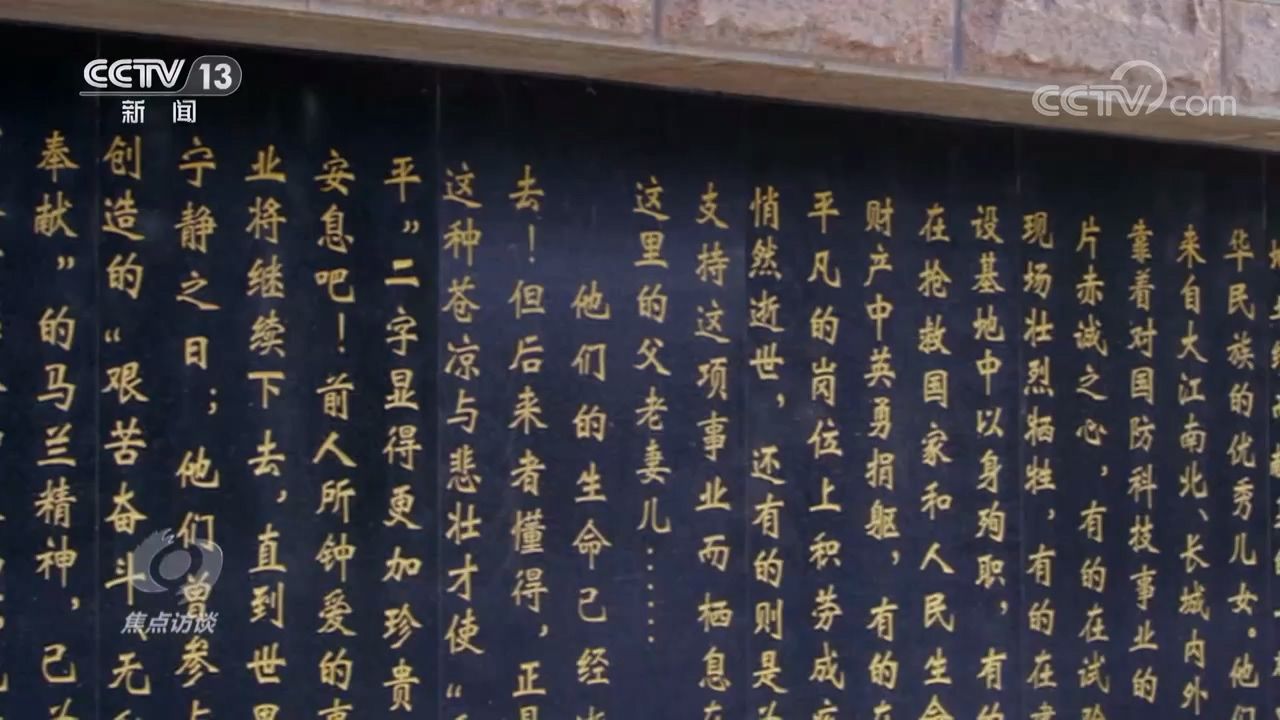 CCTV 13
新闻
CCTV.com
华民族的优秀儿女。他们
来自大江南北、长城内外
靠着对国防科技事业的
片赤诚之心，有的在试验
现场壮烈牺牲，有的在
设基地中以身殉职，有的
在抢救国家和人民生命
财产中英勇捐躯，有的在
平凡的岗位上积劳成疾
悄然逝世，还有的则是为
支持这项事业而栖息在
这里的父老妻儿……
他们的生命已经
去！但后来者懂得，正
这种苍凉与悲壮才使“
平”二字显得更加珍贵
安息吧！前人所钟爱的事
业将继续下去，直到世界
宁静之日；他们曾参与
创造的“艰苦奋斗、无
奉献”的马兰精神，已
焦点访谈